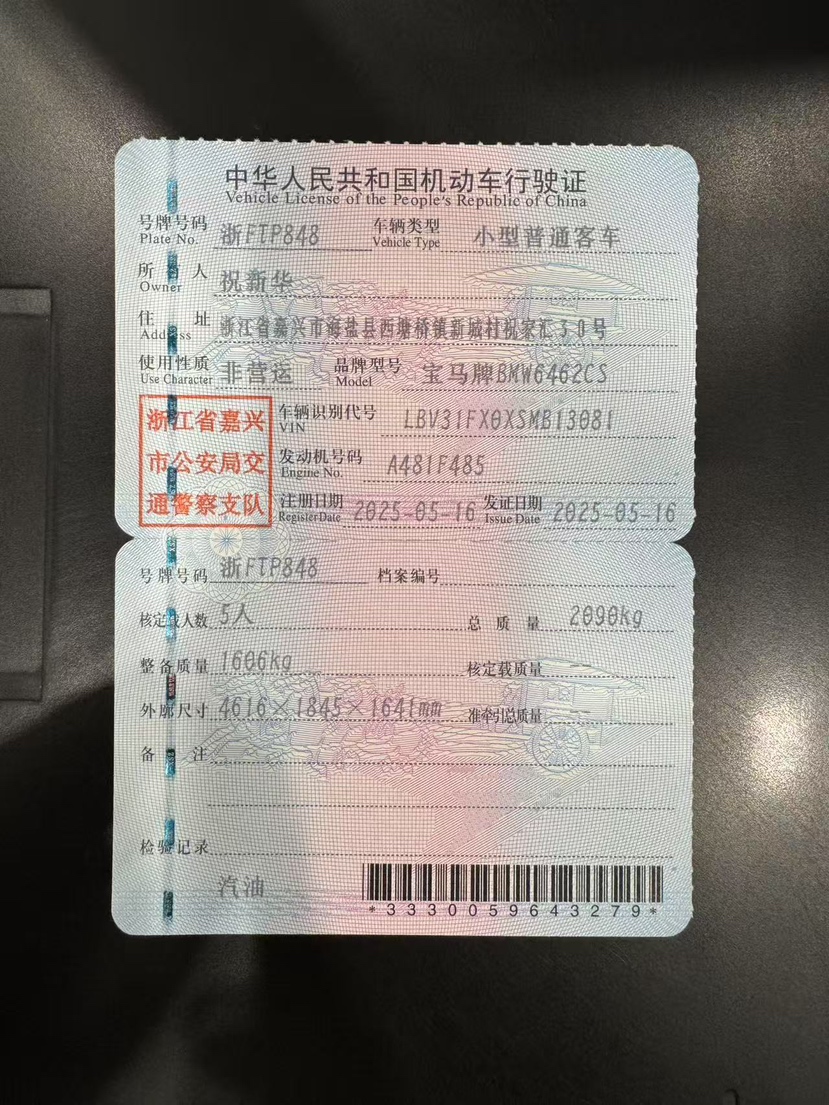 中华人民共和国机动车行驶证
Vehicle License of the People's Republic of China
号牌号码 浙FTP848 车辆类型 小型普通客车
Plate No. Vehicle Type
所有人 祝新华
Owner
住址 浙江省嘉兴市海盐县西塘桥镇新城村祝家汇30号
Address
使用性质 非营运 品牌型号 宝马牌BMW6462CS
Use Character Model
浙江省嘉兴 车辆识别代号 LBV31FX0XSMB13081
VIN
市公安局交 发动机号码 A481F485
Engine No.
通警察支队 注册日期 2025-05-16 发证日期 2025-05-16
Register Date Issue Date
号牌号码 浙FTP848 档案编号
核定载人数 5人 总质量 2090kg
整备质量 1606kg 核定载质量 --
外廓尺寸 4616×1845×1641mm 准牵引总质量 --
备注
检验记录
汽油
*3330059643279*